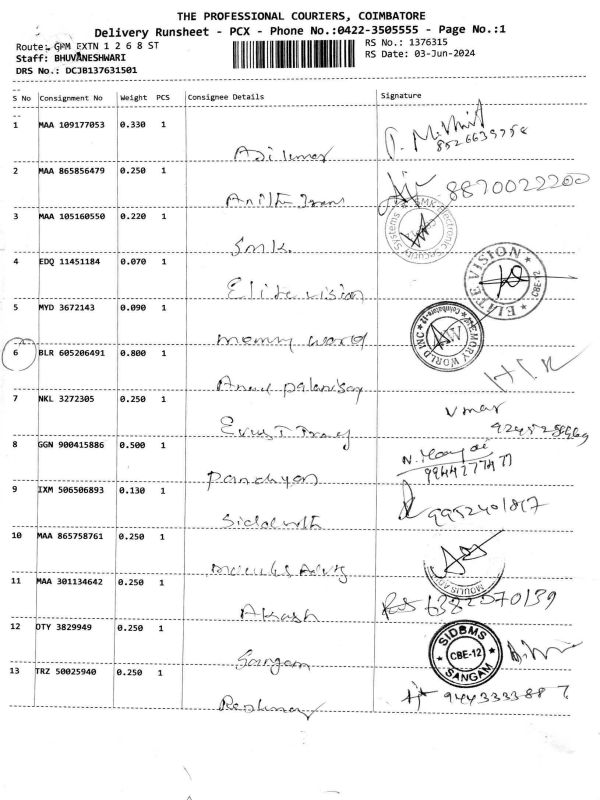 THE PROFESSIONAL COURIERS, COIMBATORE
Delivery Runsheet - PCX - Phone No.:0422-3505555 - Page No.:1
Route: GPM EXTN 1 2 6 8 ST
RS No.: 1376315
Staff: BHUVANESHWARI
RS Date: 03-Jun-2024
DRS No.: DCJB137631501
S No Consignment No Weight PCS Consignee Details Signature
1 MAA 109177053 0.330 1
8526639758
2 MAA 865856479 0.250 1
8870022200
3 MAA 105160550 0.220 1
SMK Electronic Security Systems
Smk.
4 EDQ 11451184 0.070 1
ELITE VISION CBE-12
Elite vision
5 MYD 3672143 0.090 1
MEMORY WORLD INC Coimbatore-12
memory world
6 BLR 605206491 0.800 1
7 NKL 3272305 0.250 1
8 GGN 900415886 0.500 1
9944277477
Pandiyan
9 IXM 506506893 0.130 1
Siddharth
10 MAA 865758761 0.250 1
11 MAA 301134642 0.250 1
6382570139
Akash
12 OTY 3829949 0.250 1
SIDBMS CBE-12 SANGAM
Sangam
13 TRZ 50025940 0.250 1